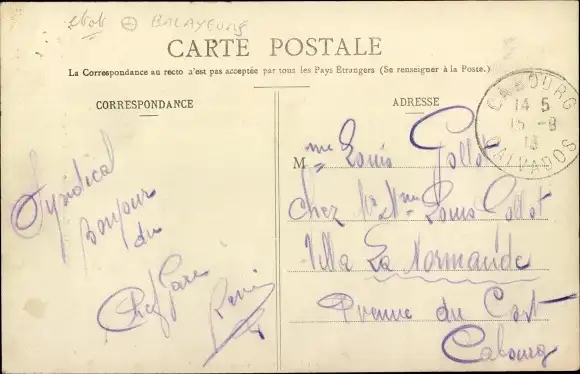 BALAYEURS
CARTE POSTALE
La Correspondance au recto n'est pas acceptée par tous les Pays Étrangers (Se renseigner à la Poste.)
CORRESPONDANCE
ADRESSE
CABOURG
14 5
15 -8
13
CALVADOS
Mme Louis Gollot
Chez Mr Mme Louis Gollot
Villa La Normande
Avenue du
Cabourg
Bonjour
du
Chef Gare